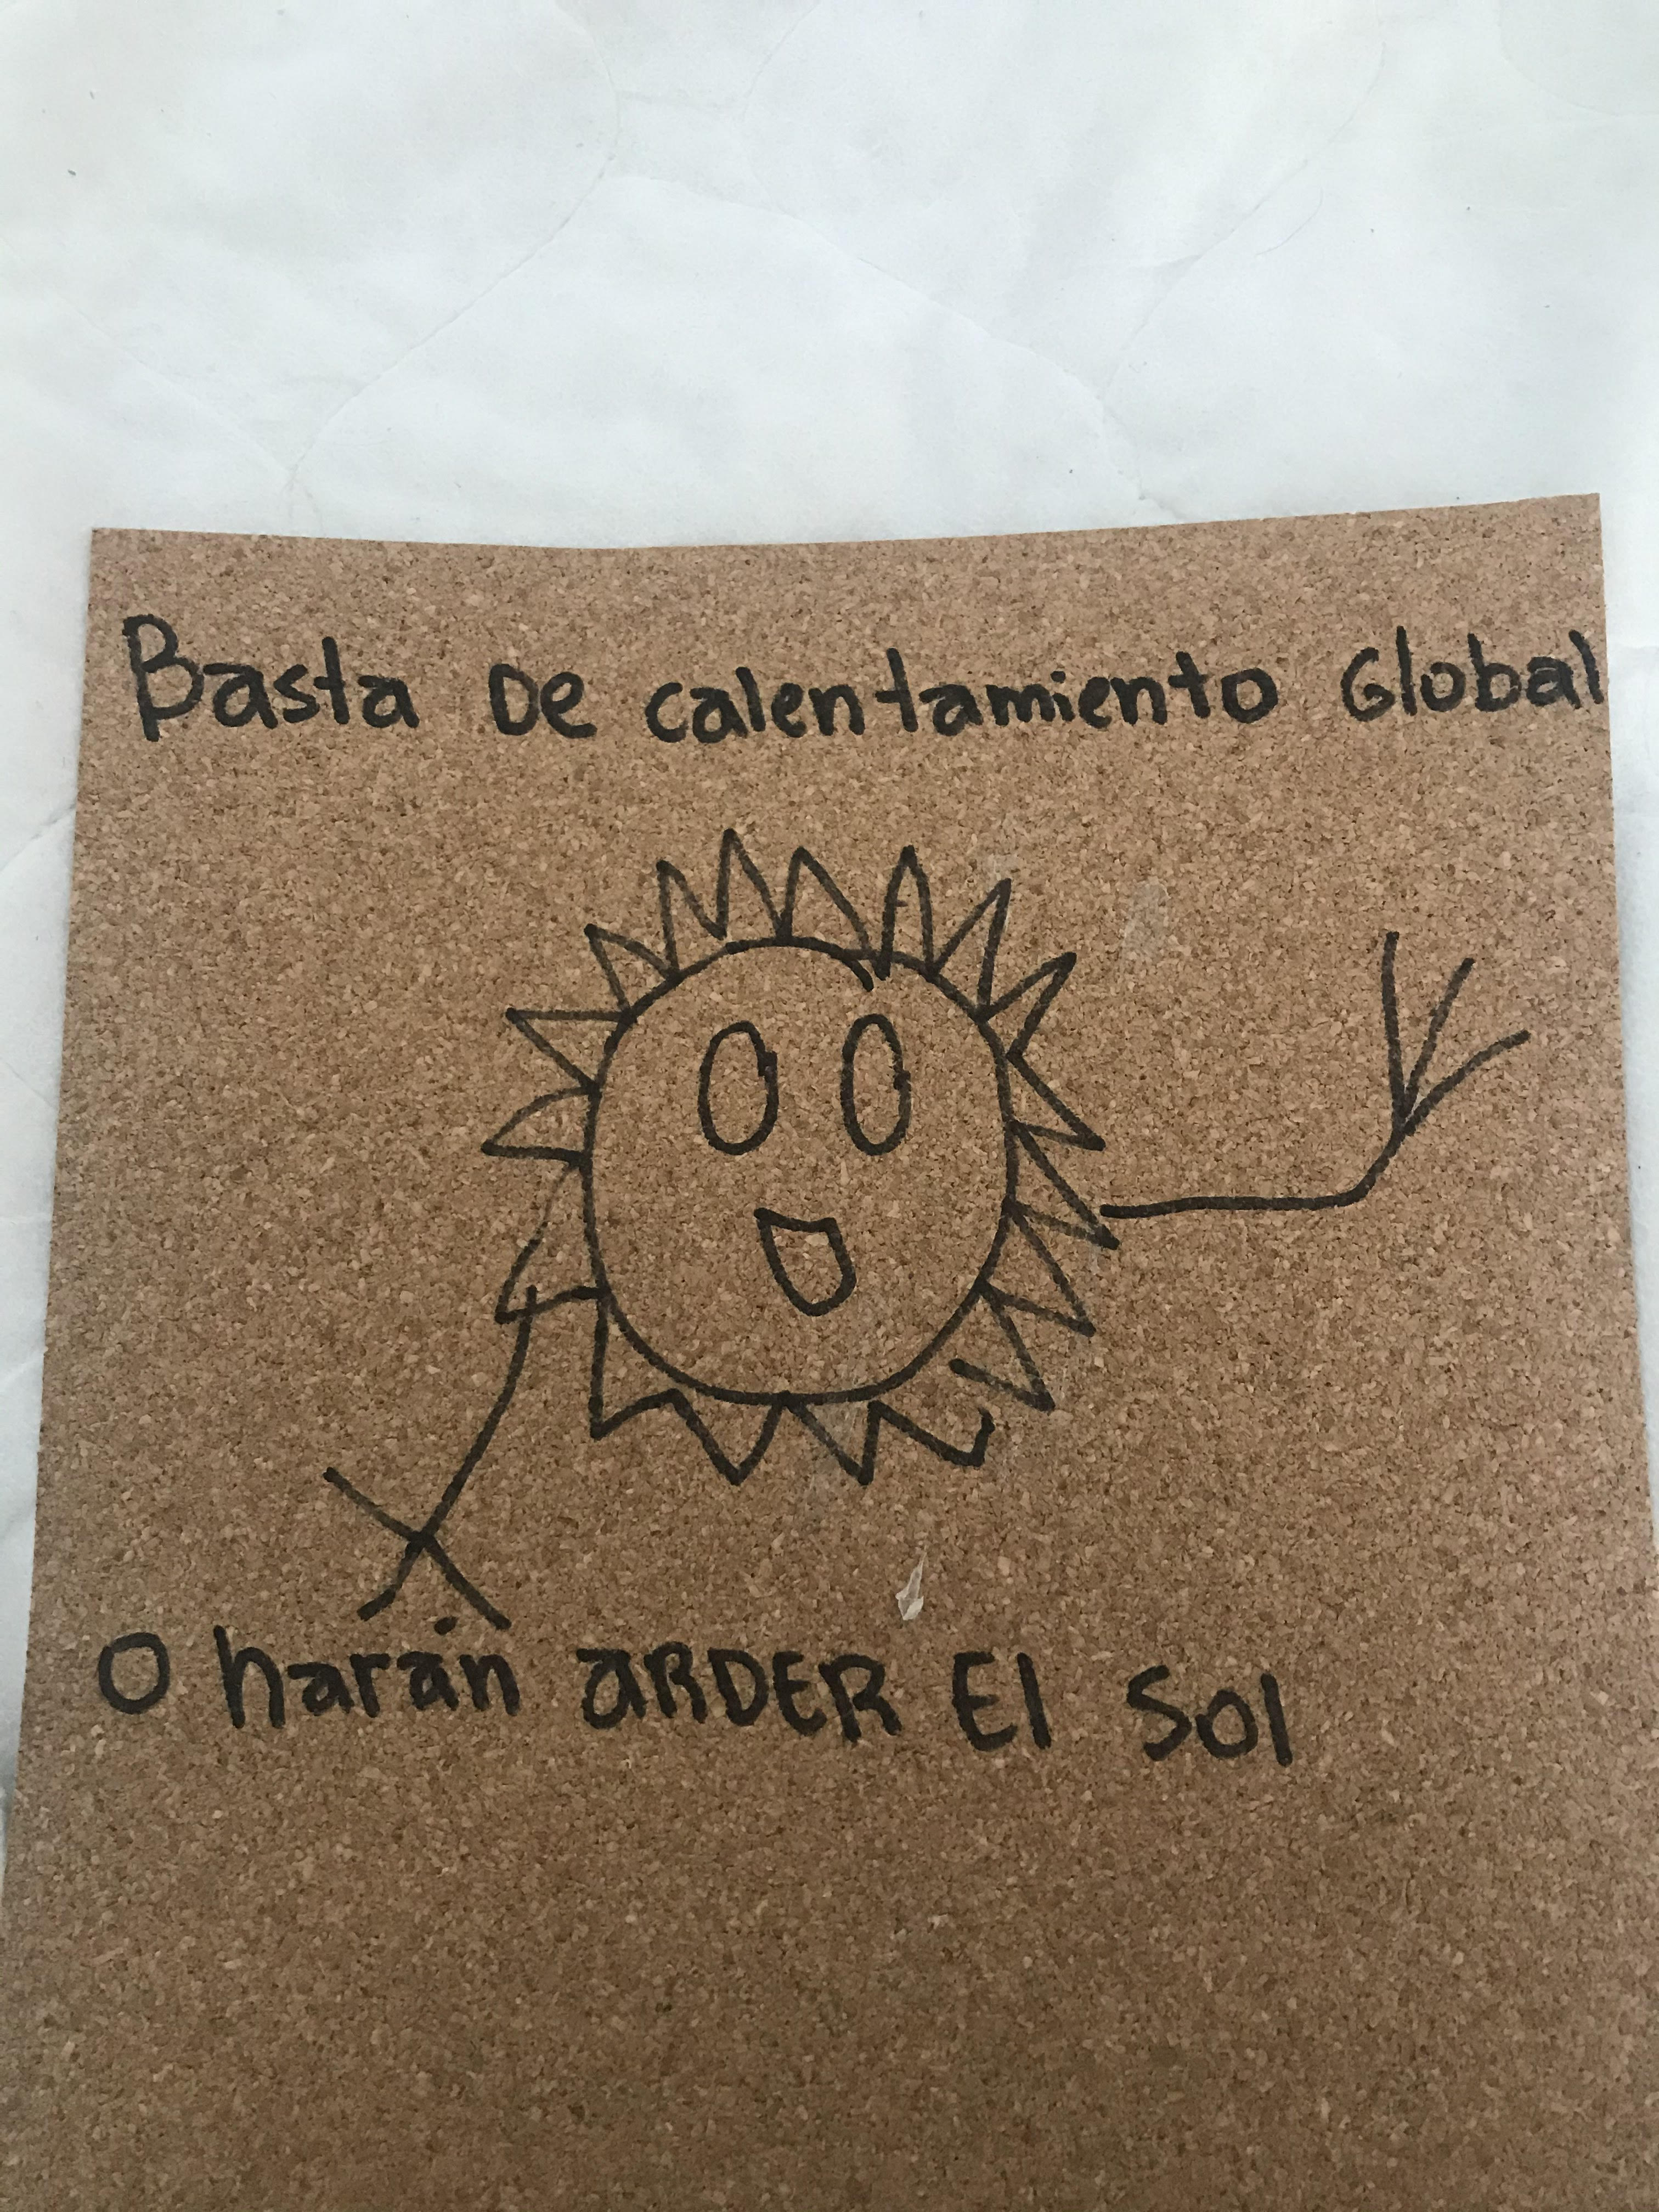 Basta De calentamiento Global
O harán aRDER El Sol